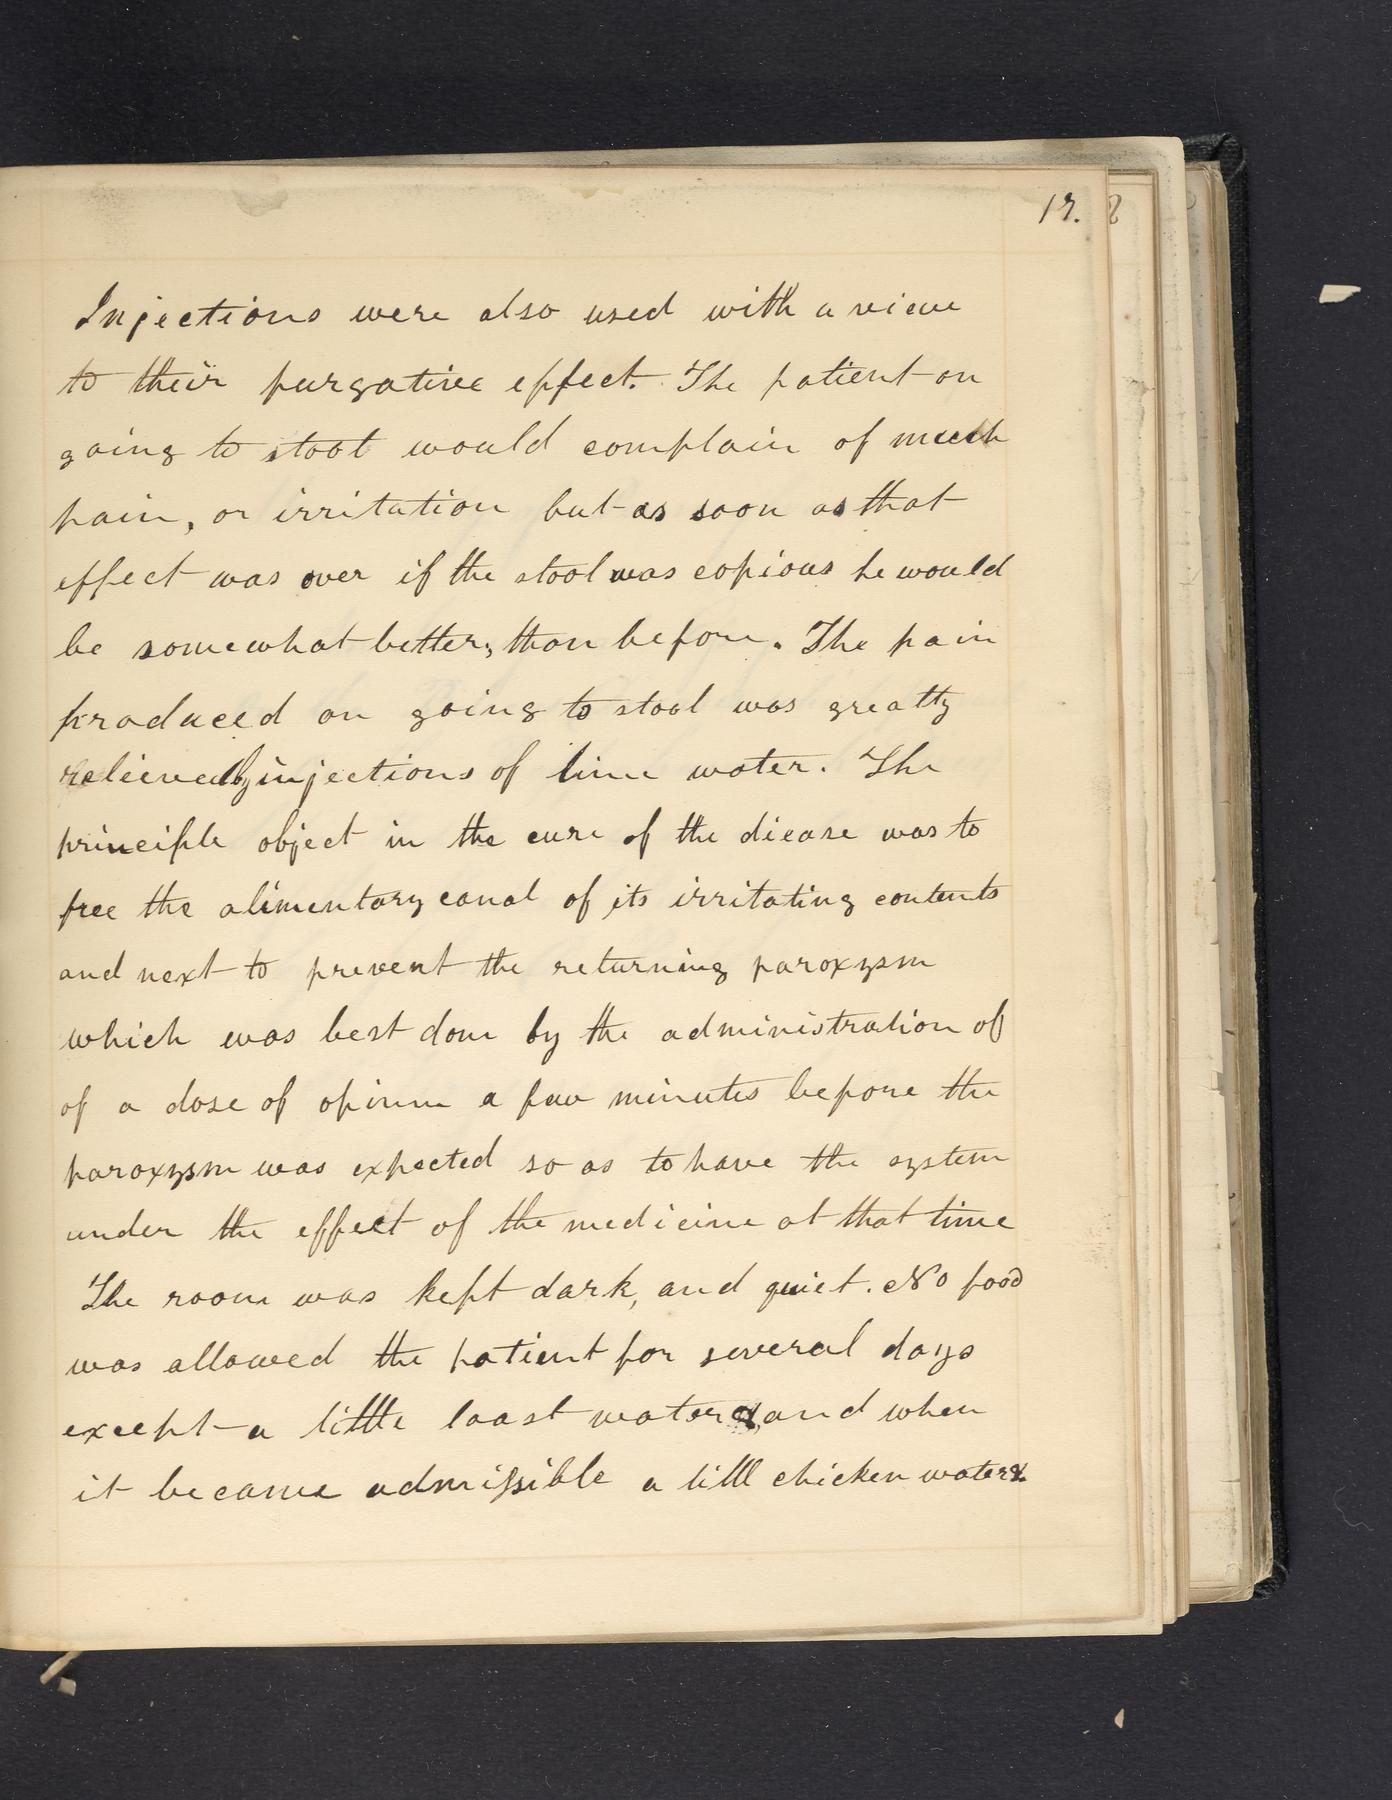 17.
Injections were also used with a view
to their purgative effect. The patient on
going to stool would complain of much
pain, or irritation but as soon as that
effect was over if the stool was copious he would
be somewhat better, than before. The pain
produced on going to stool was greatly
relieved by injections of lime water. The
principle object in the cure of the diease was to
free the alimentary canal of its irritating contents
and next to prevent the returning paroxysm
which was best done by the administration of
of a dose of opium a few minutes before the
paroxysm was expected so as to have the system
under the effect of the medicine at that time
The room was kept dark, and quiet. No food
was allowed the patient for several days
except a little toast water, and when
it became admissible a little chicken water